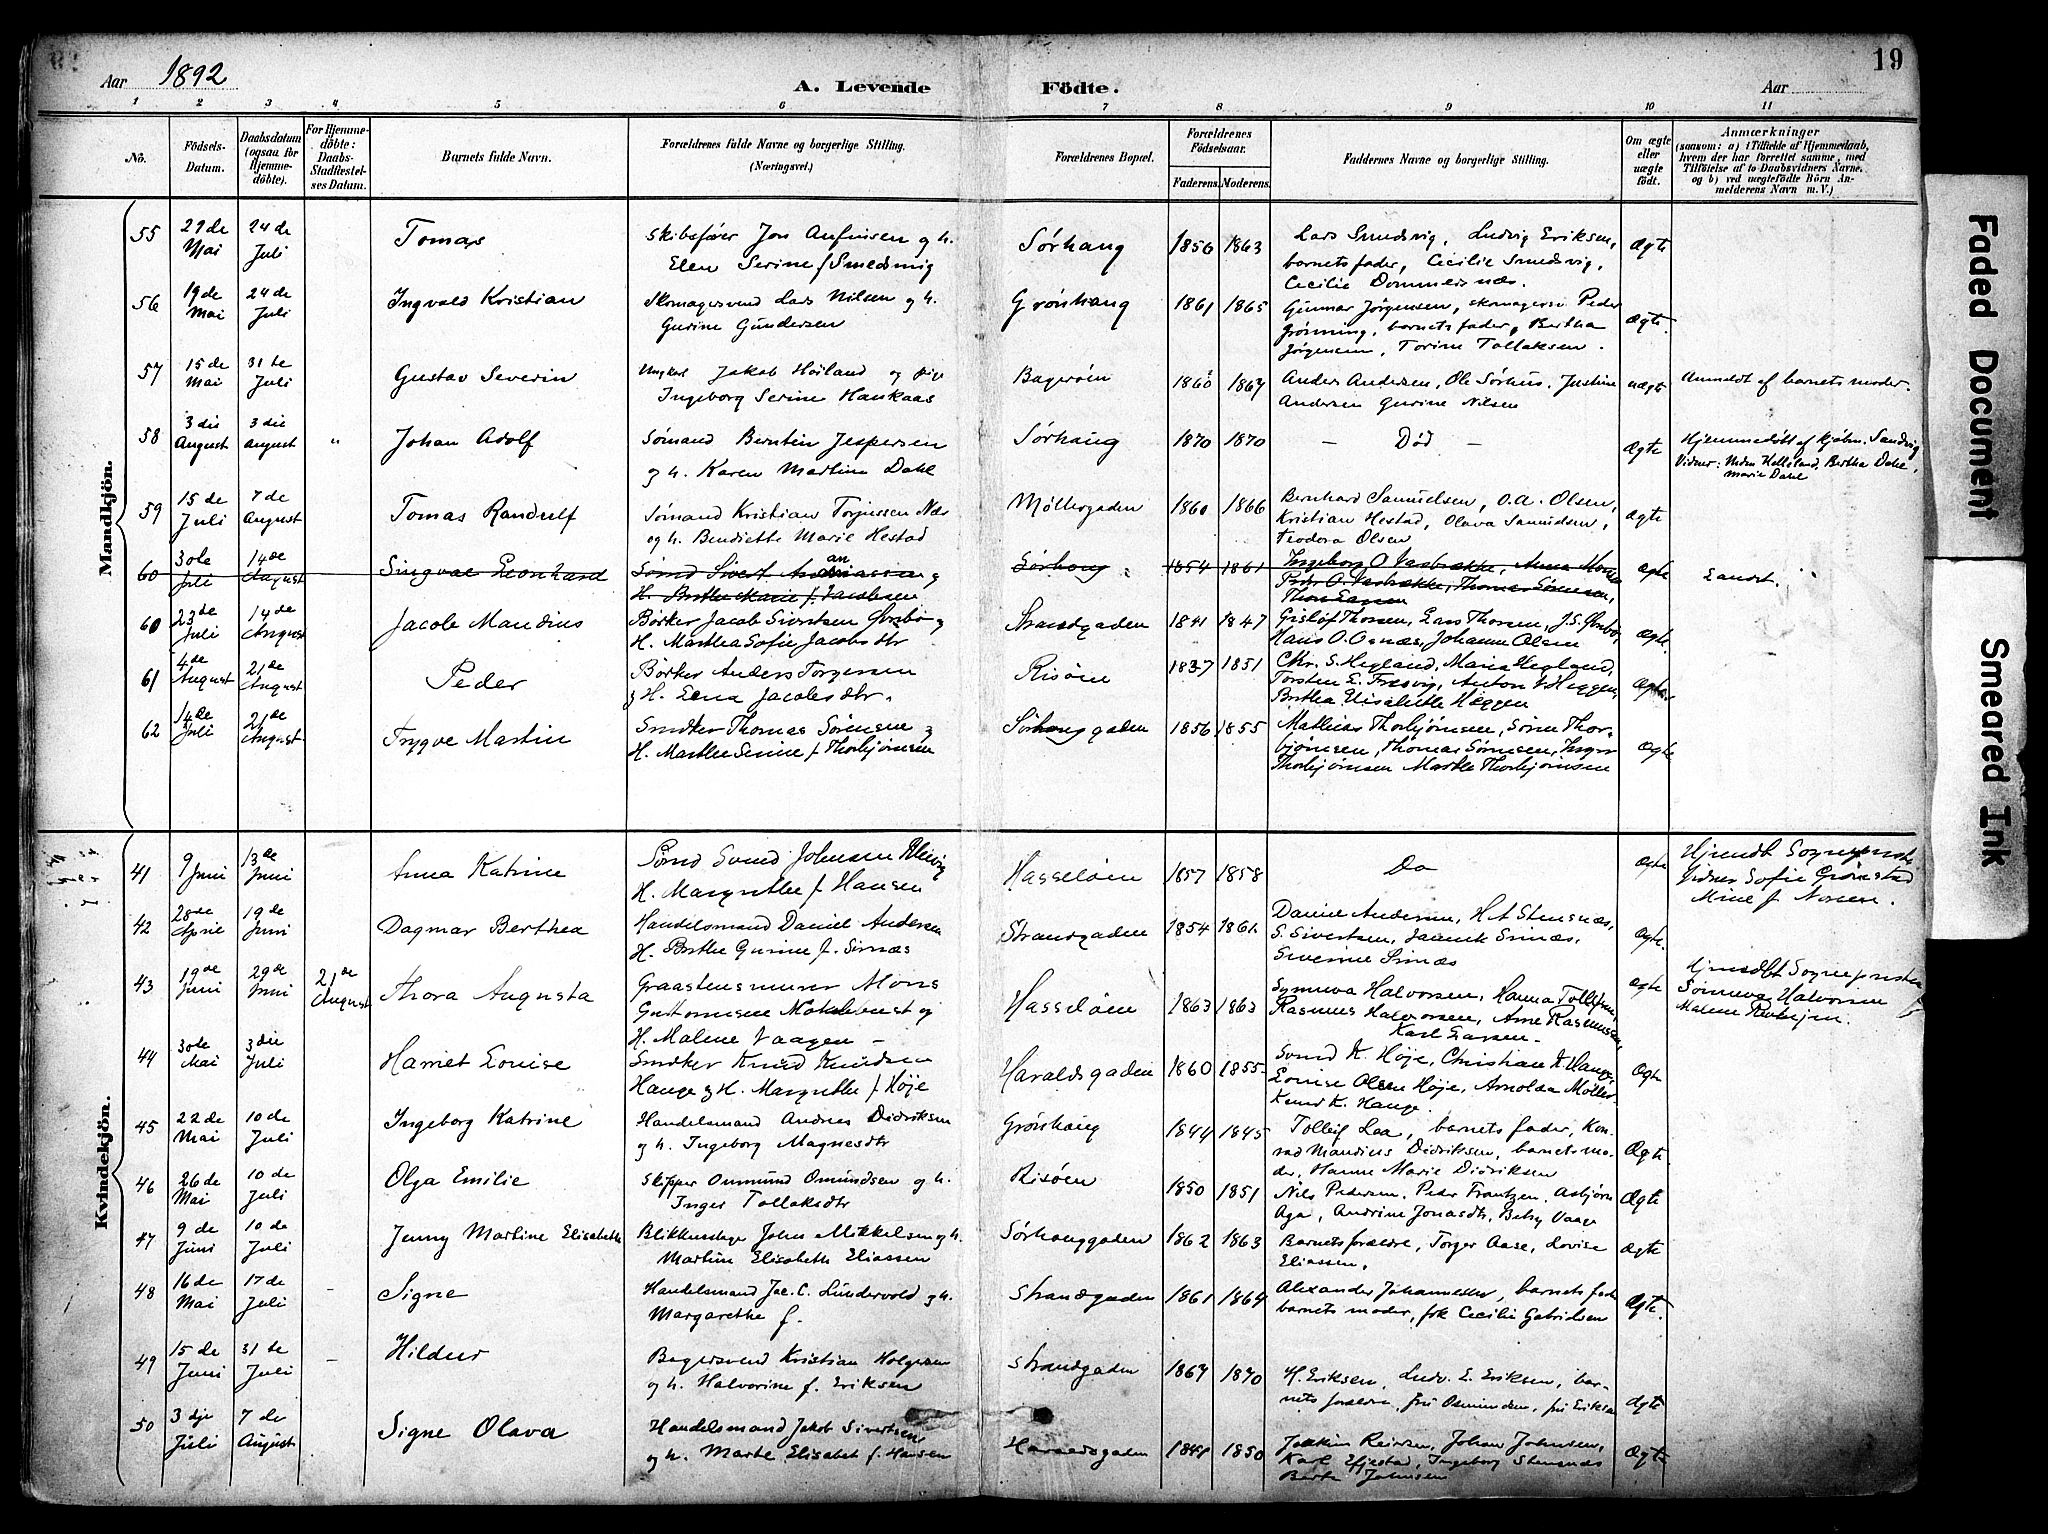 19
Aar 1892
A. Levende Födte.
Aar
1 2 3 4 5 6 7 8 9 10 11
No.
Födsels-Datum.
Daabsdatum (ogsaa for Hjemme-döbte).
For Hjemme-döbte: Daabs-Stadfæstel-ses Datum.
Barnets fulde Navn.
Forældrenes fulde Navne og borgerlige Stilling. (Næringsvei.)
Forældrenes Bopæl.
Forældrenes Födselsaar.
Faderens. Moderens.
Faddernes Navne og borgerlige Stilling.
Om ægte eller uægte födt.
Anmærkninger
(saasom: a) i Tilfælde af Hjemmedaab, hvem der har forrettet samme, med Tilföielse af to Daabsvidners Navne, og b) ved uægtefödte Börn An-melderens Navn m. V.)
Mandkjön.
55 29de Mai 24de Juli Tomas
Skibsfører Jon Anfinsen og h.
Elen Serine f Smedsvig
Sørhaug 1856 1863
Lars Smedsvig, Ludvig Eriksen,
barnets fader, Cecilie Smedsvig,
Cecilie Dommersnæs.
Ægte
56 19de Mai 24de Juli Ingvald Kristian
Skomagersvend Lars Nilsen og h.
Gurine Gundersen
Grónhaug 1861 1865
Gunnar Jørgensen, skomagersv Peder
Grönning, barnets fader, Bertha
Jørgensen, Torine Tollaksen.
Ægte.
57 15de Mai 31te Juli Gustav Severin
Ungkarl Jakob Høiland og pige
Ingeborg Serine Haukaas
Bagerøen 1860 1867
Anders Andersen, Ole Sørhus, Justine
Andersen Gurine Nilsen
uægte
Anmeldt af barnets moder.
58 3die August 3die August " Johan Adolf
Sømand Berntin Jespersen
og h. Karen Martine Dahl
Sørhaug 1870 1870
– Død –
Ægte
Hjemmedøbt af kjøbm. Sandvig
Vidner: Helleland, Bertha Dahl,
Marie Dahl
59 15de Juli 7de August Tomas Randulf
Sømand Kristian Torjussen Næs
og h. Bendiette Marie Hestad
Møllergaden 1860 1866
Bernhard Samuelsen, O.A. Olsen,
Kristian Hestad, Olava Samuelsen,
Teodora Olsen
Ægte
60 30te Juli 14de August Singval Leonhard
Sømd Sivert Andreassen og
H. Berthe Marie f. Jacobsen
Sørhaug 1854 1861
Ingeborg O Vasbrække, Anna
Peder O. Vasbrække, Thomas Sørensen,
Thom Larsen
Ægte
Landst.
60 23de Juli 14de August Jacob Mandius
Bøtker Jacob Sivertsen og
H. Marthea Sofie Jacobsdtr
Strandgaden 1841 1847
Thorsen, Lars Thorsen, J.S.
Hans O. Osnæs, Johanne Olsen
Ægte.
61 4de August 21de August Peder
Bøtker Anders Torgersen
& H. Lena Jacobsdtr.
Risøen 1837 1851
Chr. S. Hegland, Maria Hegland,
Torsten E. Træsvig, Anton Heggen,
Berthea Elisabeth Heggen
Ægte
62 14de Juli 21de August Trygve Martin
Snedker Thomas Sørensen &
H. Marthe Serine f Thorbjørnsen
Sørhauggaden 1856 1855
Mathias Thorbjørnsen, Søren Thor-
bjørnsen, Thomas Sørensen, Inger
Thorbjørnsen Marthe Thorbjørnsen
Ægte
Kvindekjön.
41 9 Juni 13de Juni Anna Katrine
Sømd Svend Johnsen
H. Margrethe f Hansen
Hasseløen 1857 1858
Do
Ægte
Hjemdt Sognepræst
Vidner Sofie Grønstad
Mine f
42 28de April 19de Juni Dagmar Berthea
Handelsmand Daniel Andersen
H. Berthe Gurine f. Simnæs
Strandgaden 1854 1861
Daniel Andersen, H A Stensnæs,
S. Sivertsen, Jannik Simnæs,
Severine Simnæs
Ægte.
43 19de Juni 29de Juni 21de August Thora Augusta
Graastensmurer Mons
Guttormsen og
H. Malene Vaagen –
Hasseløen 1863 1863
Synneva Halvorsen, Hanna Tollefsen,
Rasmus Halvorsen, Arne Rasmussen,
Karl Larsen.
Ægte
Hjemdøbt Sognepræsten
Sønneva Halvorsen
Malene
44 30te Mai 3die Juli Harriet Louise
Snedker Knud Knudsen
Hauge & H. Margrethe f Høje
Haraldsgaden 1860 1855
Svend K. Høje, Christian K Hauge,
Louise Olsen Høje, Arnolda Møller
Knud K. Hauge.
Ægte
45 22de Mai 10de Juli Ingeborg Katrine
Handelsmand Andreas Didriksen
og h. Ingeborg Magnesdtr
Grønhaug 1844 1845
Tolleif Laa, barnets fader, Kon-
rad Mandius Didriksen, barnets mo-
der, Hanne Marie Didriksen
Ægte.
46 26de Mai 10de Juli Olga Emilie
Skipper Osmund Osmundsen og h.
Inger Tollaksdtr
Risøen 1850 1851
Nils Pedersen, Peder Frantzen, Asbjørn
Aga, Andrine Jonasdtr, Betzy Vaage
Ægte
47 9de Juni 10de Juli Jenny Martine Elisabeth
Blikkenslager Johs Mikkelsen og h.
Martine Elisabeth Eliassen
Sørhauggaden 1862 1863
Barnets forældre, Torger Aase, Lovise
Eliassen.
Ægte
48 16de Mai 17de Juli - Signe
Handelsmand Jac. C. Lundervold og h.
Margarethe f.
Strandgaden 1861 1864
Alexander Johannessen, barnets fader
barnets moder, frk Cecilie Gabrielsen
Ægte.
49 15de Juni 31te Juli - Hildur
Bagersvend Kristian Holgersen
og h. Halvorine f. Eriksen
Strandgaden 1867 1870
H. Eriksen, Ludv. E. Eriksen, bar-
nets forældre, fru Osmundsen, fru Eriksen
Ægte
50 3dje Juli 7de August Signe Olava
Handelsmand Jakob Sivertsen
og h. Marte Elisabet f. Hansen
Haraldsgaden 1849 1850
Joakim Reiersen, Johan Johnsen,
Karl Efjestad, Ingeborg Stensnæs
Berte Johnsen
Ægte
Faded Document
Smeared Ink